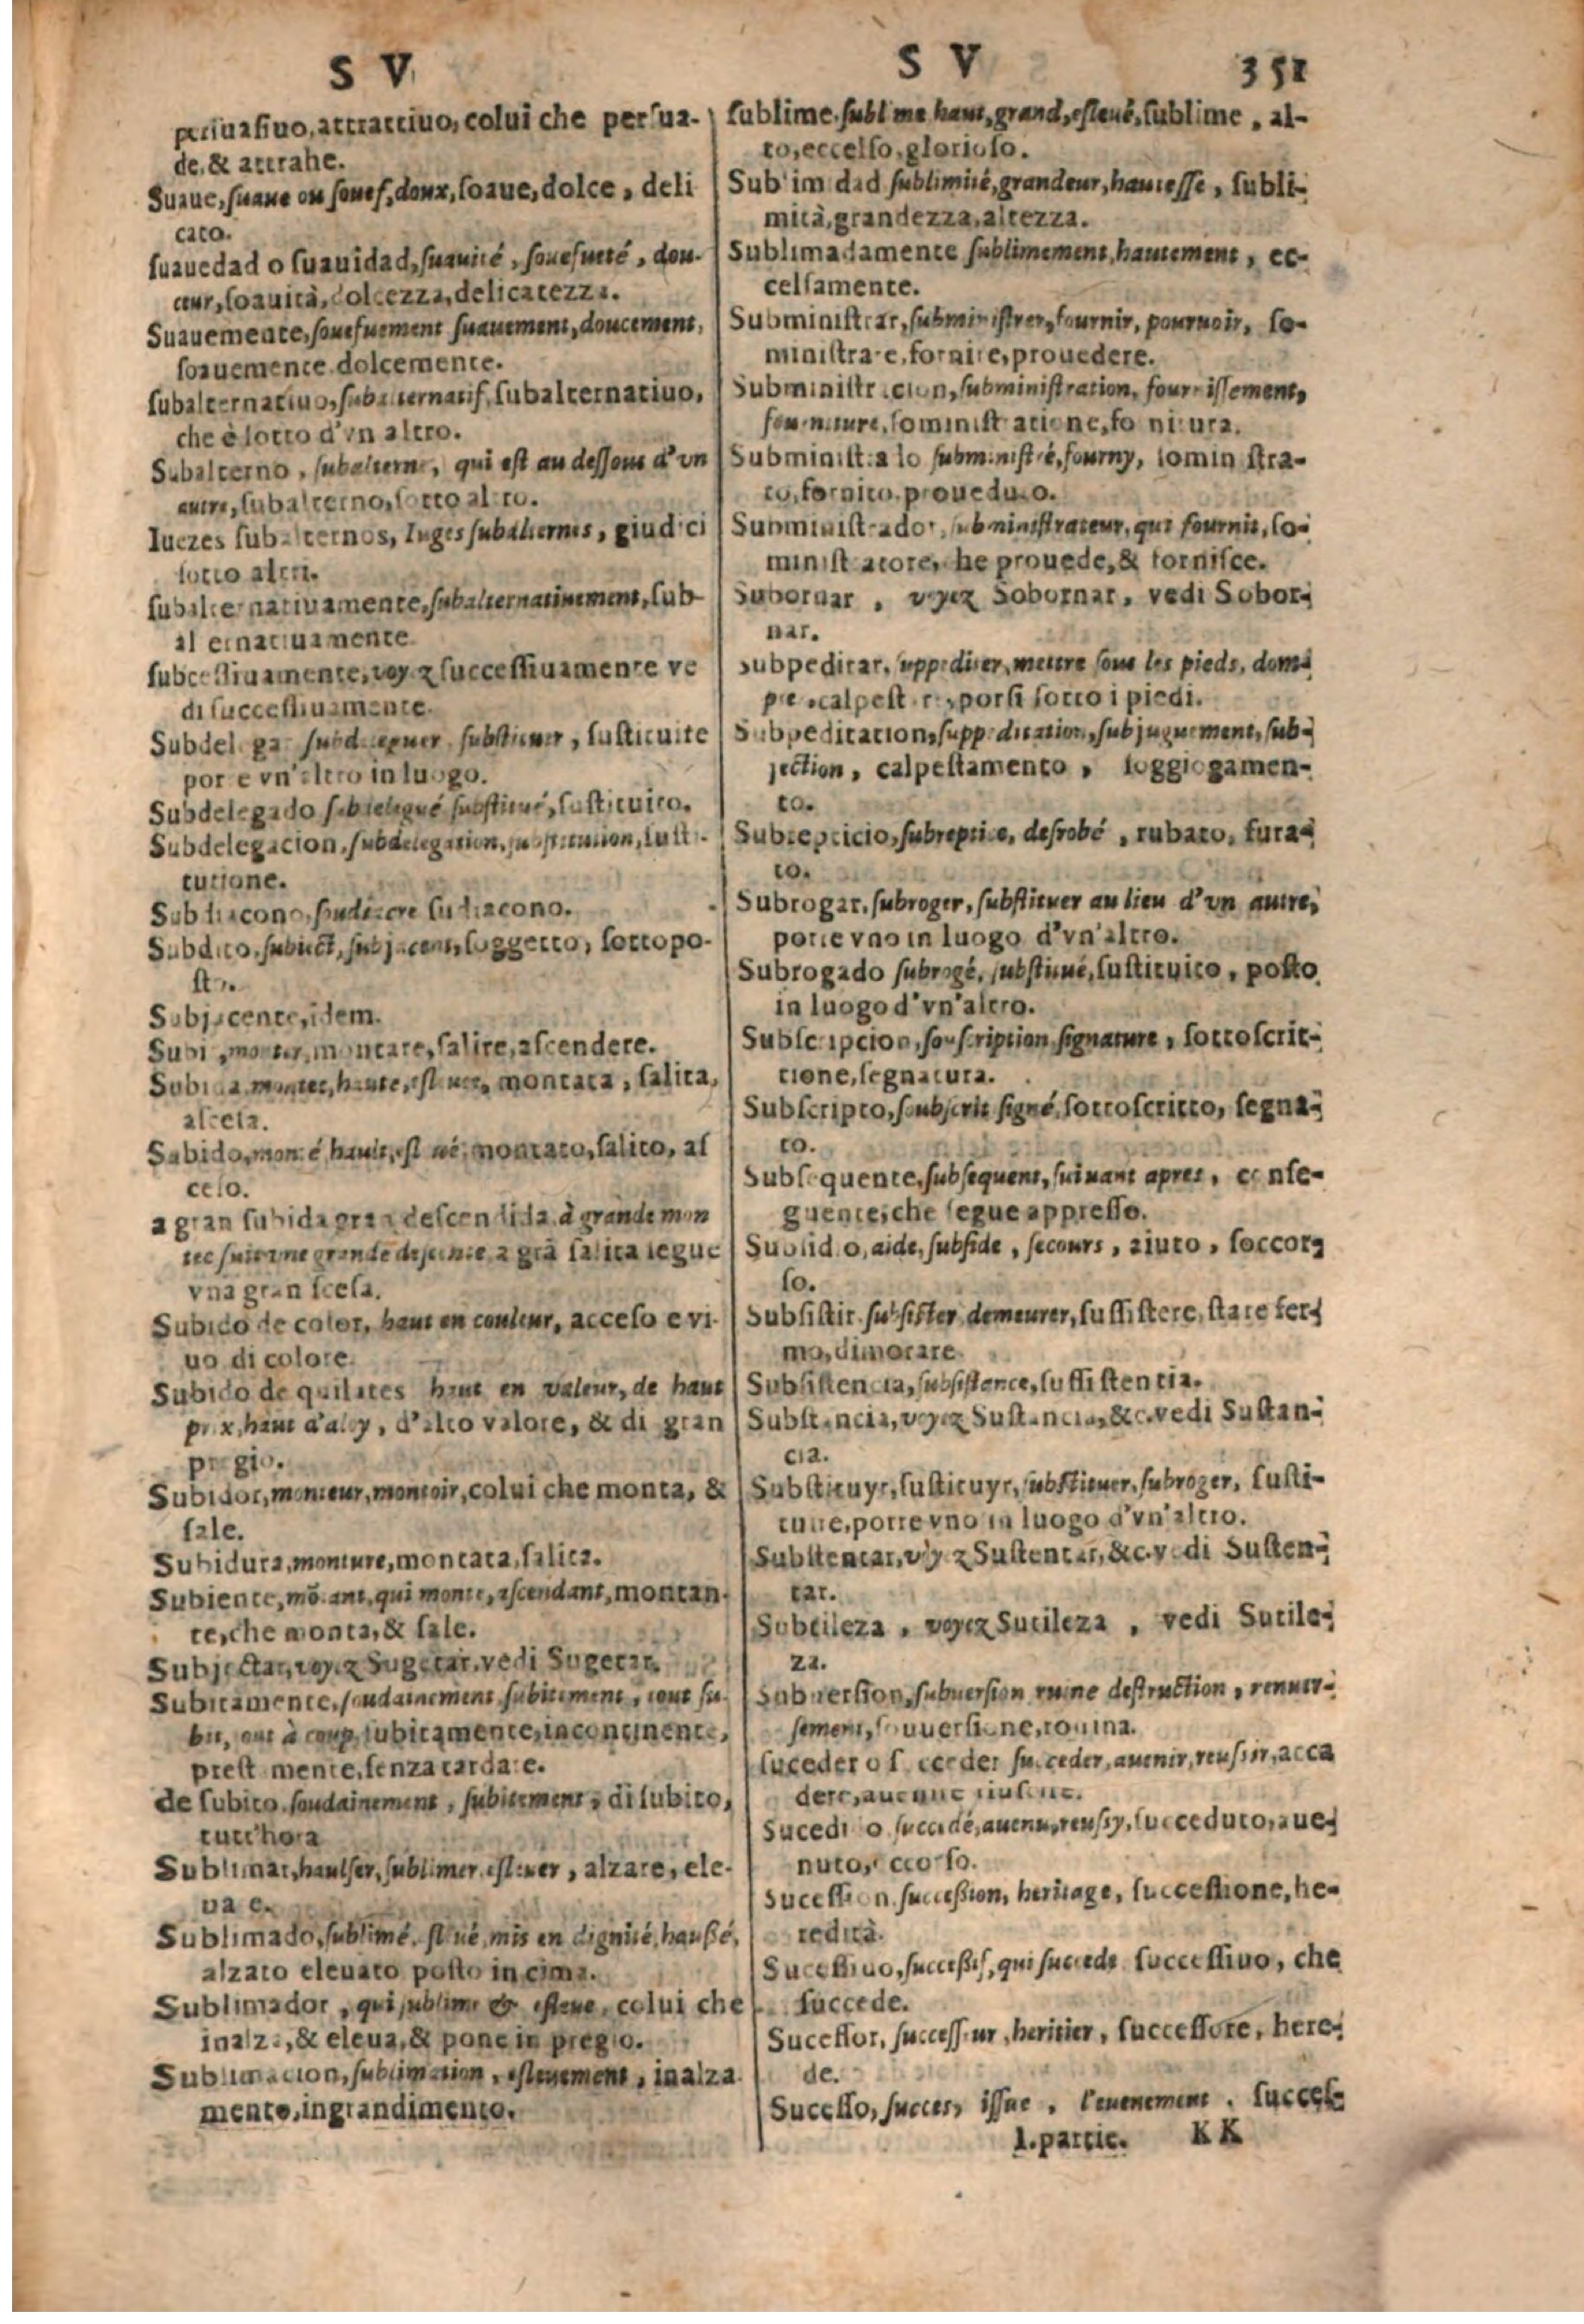 S V
perſuaſiuo, attrattiuo, colui che perſua-
de, & attrahe.
Suaue, ſuaue ou ſouef, doux, ſoaue, dolce, deli
cato.
ſuauedad o ſuauidad, ſuauité, ſouefueté, dou-
ceur, ſoauità, dolcezza, delicatezza.
Suauemente, ſouefuement ſuauement, doucement,
ſoauemente dolcemente.
ſubalternatiuo, ſubalternatif, ſubalternatiuo,
che è ſotto d'vn altro.
Subalterno, ſubalterne, qui eſt au deſſous d'vn
autre, ſubalterno, ſotto altro.
Iuezes ſubalternos, Iuges ſubalternes, giudici
ſotto altri.
ſubalternatiuamente, ſubalternatiuement, ſub-
alternatiuamente
ſubceſſiuamente, voyez ſucceſſiuamente ve
di ſucceſſiuamente.
Subdelegar ſubdeleguer, ſubſtituer, ſuſtituire
porre vn'altro in luogo.
Subdelegado ſubdelegué ſubſtitué, ſuſtituito.
Subdelegacion, ſubdelegation, ſubſtitution, ſuſti-
tutione.
Subdiacono, ſoudiacre ſudiacono.
Subdito, ſubiect, ſubjacent, ſoggetto, ſottopo-
ſto.
Subjacente, idem.
Subir, monter, montare, ſalire, aſcendere.
Subida montee, haute, eſleuee, montata, ſalita,
aſceſa.
Subido, monté, hault, eſleué, montato, ſalito, aſ
ceſo.
a gran ſubida gran deſcendida, à grande mon
tee ſuit vne grande deſcente, a grā ſalita ſegue
vna gran ſceſa.
Subido de color, haut en couleur, acceſo e vi-
uo di colore.
Subido de quilates haut en valeur, de haut
prix, haut d'aloy, d'alto valore, & di gran
pregio.
Subidor, monteur, montoir, colui che monta, &
ſale.
Subidura, monture, montata, ſalita.
Subiente, mōtant, qui monte, aſcendant, montan-
te, che monta, & ſale.
Subjectar, voyez Sugetar, vedi Sugetar.
Subitamente, ſoudainement, ſubitement, tout ſu-
bit, tout à coup, ſubitamente, incontinente,
preſtamente, ſenza tardare.
de ſubito, ſoudainement, ſubitement, di ſubito,
tutt'hora
Sublimar, haulſer, ſublimer, eſleuer, alzare, ele-
uare.
Sublimado, ſublimé, eſleué, mis en dignité, hauſſé,
alzato eleuato poſto in cima.
Sublimador, qui ſublime & eſleue, colui che
inalza, & eleua, & pone in pregio.
Sublimacion, ſublimation, eſleuement, inalza
mento, ingrandimento.
S V 351
ſublime, ſublime haut, grand, eſleué, ſublime, al-
to, eccelſo, glorioſo.
Sublimidad ſublimité, grandeur, hauteſſe, ſubli-
mità, grandezza, altezza.
Sublimadamente ſublimement, hautement, ec-
celſamente.
Subminiſtrar, ſubminiſtrer, fournir, pouruoir, ſo-
miniſtrare, fornire, prouedere.
Subminiſtracion, ſubminiſtration, fourniſſement,
fourniture, ſominiſtratione, fornitura.
Subminiſtrado ſubminiſtré, fourny, ſominiſtra-
to, fornito, proueduto.
Subminiſtrador, ſubminiſtrateur, qui fournit, ſo-
miniſtratore, che prouede, & forniſce.
Subornar, voyez Sobornar, vedi Sobor-
nar.
Subpeditar, ſuppediter, mettre ſous les pieds, dom-
pter, calpeſtare, porſi ſotto i piedi.
Subpeditacion, ſuppeditation, ſubjuguement, ſub-
jection, calpeſtamento, ſoggiogamen-
to.
Subrepticio, ſubreptice, deſrobé, rubato, fura-
to.
Subrogar, ſubroger, ſubſtituer au lieu d'vn autre,
porre vno in luogo d'vn'altro.
Subrogado ſubrogé, ſubſtitué, ſuſtituito, poſto
in luogo d'vn'altro.
Subſcripcion, ſouſcription ſignature, ſottoſcrit-
tione, ſegnatura.
Subſcripto, ſoubſcrit ſigné, ſottoſcritto, ſegna-
to.
Subſequente, ſubſequent, ſuiuant apres, conſe-
guente, che ſegue appreſſo.
Subſidio, aide, ſubſide, ſecours, aiuto, ſoccor-
ſo.
Subſiſtir, ſubſiſter demeurer, ſuſſiſtere, ſtare fer-
mo, dimorare.
Subſiſtencia, ſubſiſtance, ſuſſiſtentia.
Subſtancia, voyez Suſtancia, &c. vedi Suſtan-
cia.
Subſtituyr, ſuſtituyr, ſubſtituer, ſubroger, ſuſti-
tuire, porre vno in luogo d'vn'altro.
Subſtentar, voyez Suſtentar, &c. vedi Suſten-
tar.
Subtileza, voyez Sutileza, vedi Sutile-
za.
Subuerſion, ſubuerſion ruine deſtruction, renuer-
ſement, ſouuerſione, rouina.
ſuceder o ſucceder ſucceder, auenir, reuſſir, acca
dere, auenire riuſcire.
Sucedido ſuccedé, auenu, reuſſy, ſucceduto, aue-
nuto, occorſo.
Suceſſion ſucceſſion, heritage, ſucceſſione, he-
redità.
Suceſſiuo, ſucceſſif, qui ſuccede ſucceſſiuo, che
ſuccede.
Suceſſor, ſucceſſeur, heritier, ſucceſſore, here-
de.
Suceſſo, ſucces, iſſue, l'euenement, ſucceſ-
1. partie. KK